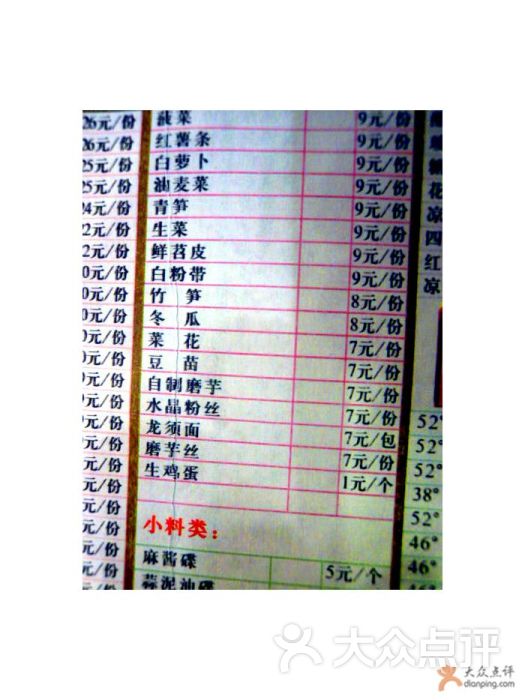 26元/份 菠菜 9元/份
26元/份 红薯条 9元/份
25元/份 白萝卜 9元/份
25元/份 油麦菜 9元/份
24元/份 青笋 9元/份 花
22元/份 生菜 9元/份 凉
2元/份 鲜苕皮 9元/份 四
0元/份 白粉带 9元/份 红
0元/份 竹 笋 8元/份 凉
0元/份 冬 瓜 8元/份
0元/份 菜 花 7元/份
元/份 豆 苗 7元/份
元/份 自制磨芋 7元/份
元/份 水晶粉丝 7元/份 52°
元/份 龙须面 7元/包 52°
元/份 磨芋丝 7元/份 52°
元/份 生鸡蛋 1元/个 38°
元/份 52°
元/份 小料类： 46°
元/份 麻酱碟 5元/个 46°
元/份 蒜泥油碟 46°
大众点评
大众点评
dianping.com